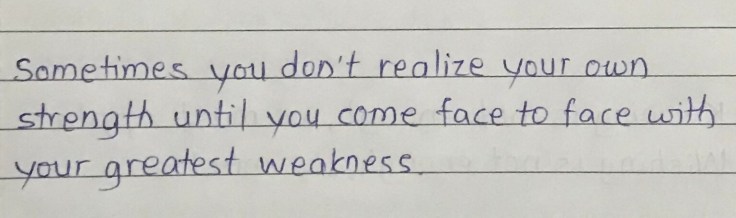 Sometimes you don't realize your own
strength until you come face to face with
your greatest weakness.